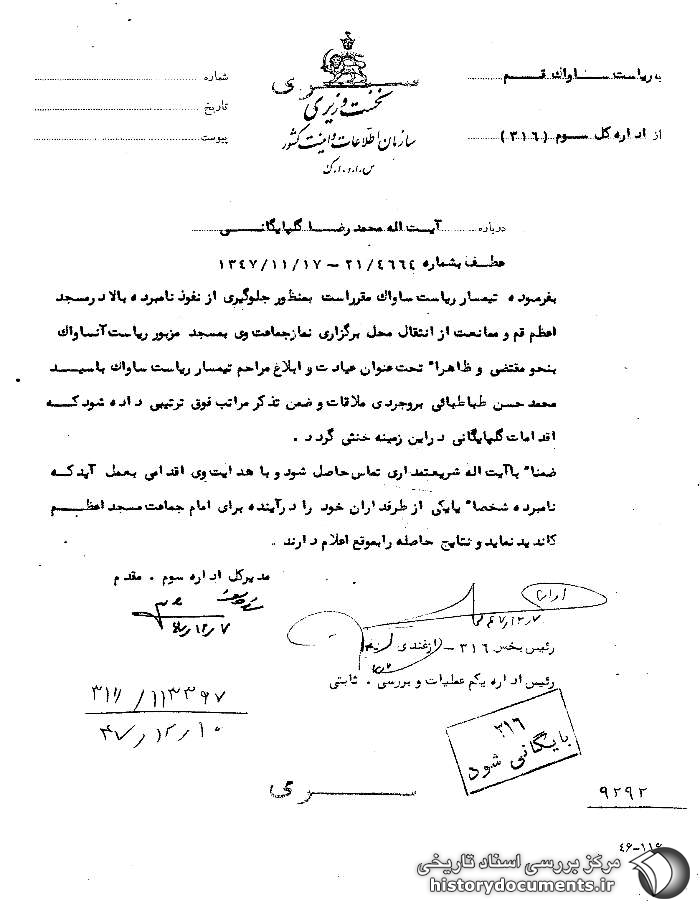 سری
نخست وزیری
سازمان اطلاعات و امنیت کشور
س.ا.و.ا.ک
به ریاست ساواک قم
از اداره کل سوم (۳۱۶)
شماره
تاریخ
پیوست
درباره آیت اله محمد رضا گلپایگانی
عطف بشماره ۲۱/٤٦٦٤ - ۱۳٤۷/۱۱/۱۷
بفرموده تیمسار ریاست ساواک مقرراست بمنظور جلوگیری از نفوذ نامبرده بالا در مسجد
اعظم قم و ممانعت از انتقال محل برگزاری نماز جماعت وی بمسجد مزبور ریاست آنساواک
بنحو مقتضی و ظاهراً تحت عنوان عیادت و ابلاغ مراحم تیمسار ریاست ساواک باسید
محمد حسن طباطبائی بروجردی ملاقات و ضمن تذکر مراتب فوق ترتیبی داده شود که
اقدامات گلپایگانی در این زمینه خنثی گردد.
ضمناً باآیت اله شریعتمداری تماس حاصل شود و با هدایت وی اقدامی بعمل آید که
نامبرده شخصاً یایکی از طرفداران خود را درآینده برای امام جماعت مسجد اعظم
کاندید نماید و نتایج حاصله رابموقع اعلام دارند.
مدیرکل اداره سوم . مقدم
۴۷/۱۲/۷
۴۷/۱۲/۷
رئیس بخش ۳۱۶ - ازغندی
رئیس اداره یکم عملیات و بررسی . ثابتی
۳۱۶/۱۱۳۳۹۷
۴۷/۱۲/۱۰
۳۱۶
بایگانی شود
سری
۹۲۹۲
مرکز بررسی اسناد تاریخی
historydocuments.ir